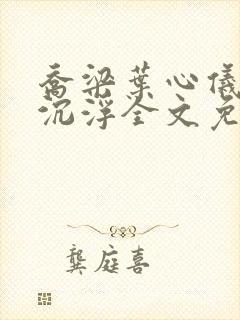 乔梁葉心儀
沉浮全文免
龔庭喜